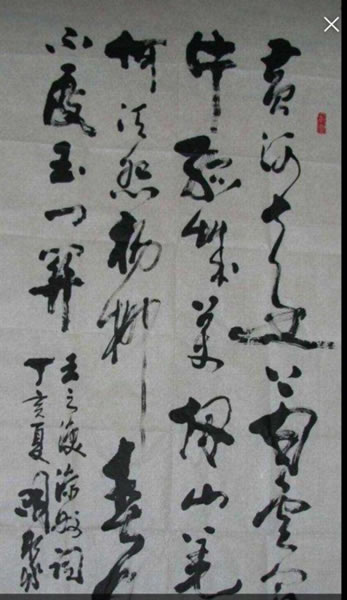 黄河远上白云间
片孤城万仞山羌
何须怨杨柳春
不度玉门关
王之涣凉州词
丁亥夏周